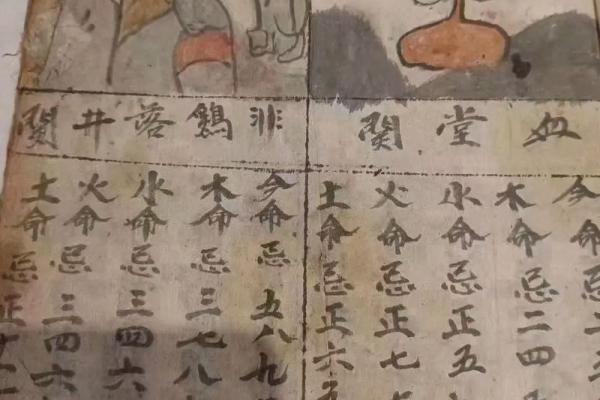 血堂関
今命忌
木命忌二四
水命忌正五
火命忌正七
土命忌正六
非鷄落井関
今命忌五八九
木命忌三七八
水命忌三四六
火命忌三四六
土命忌正